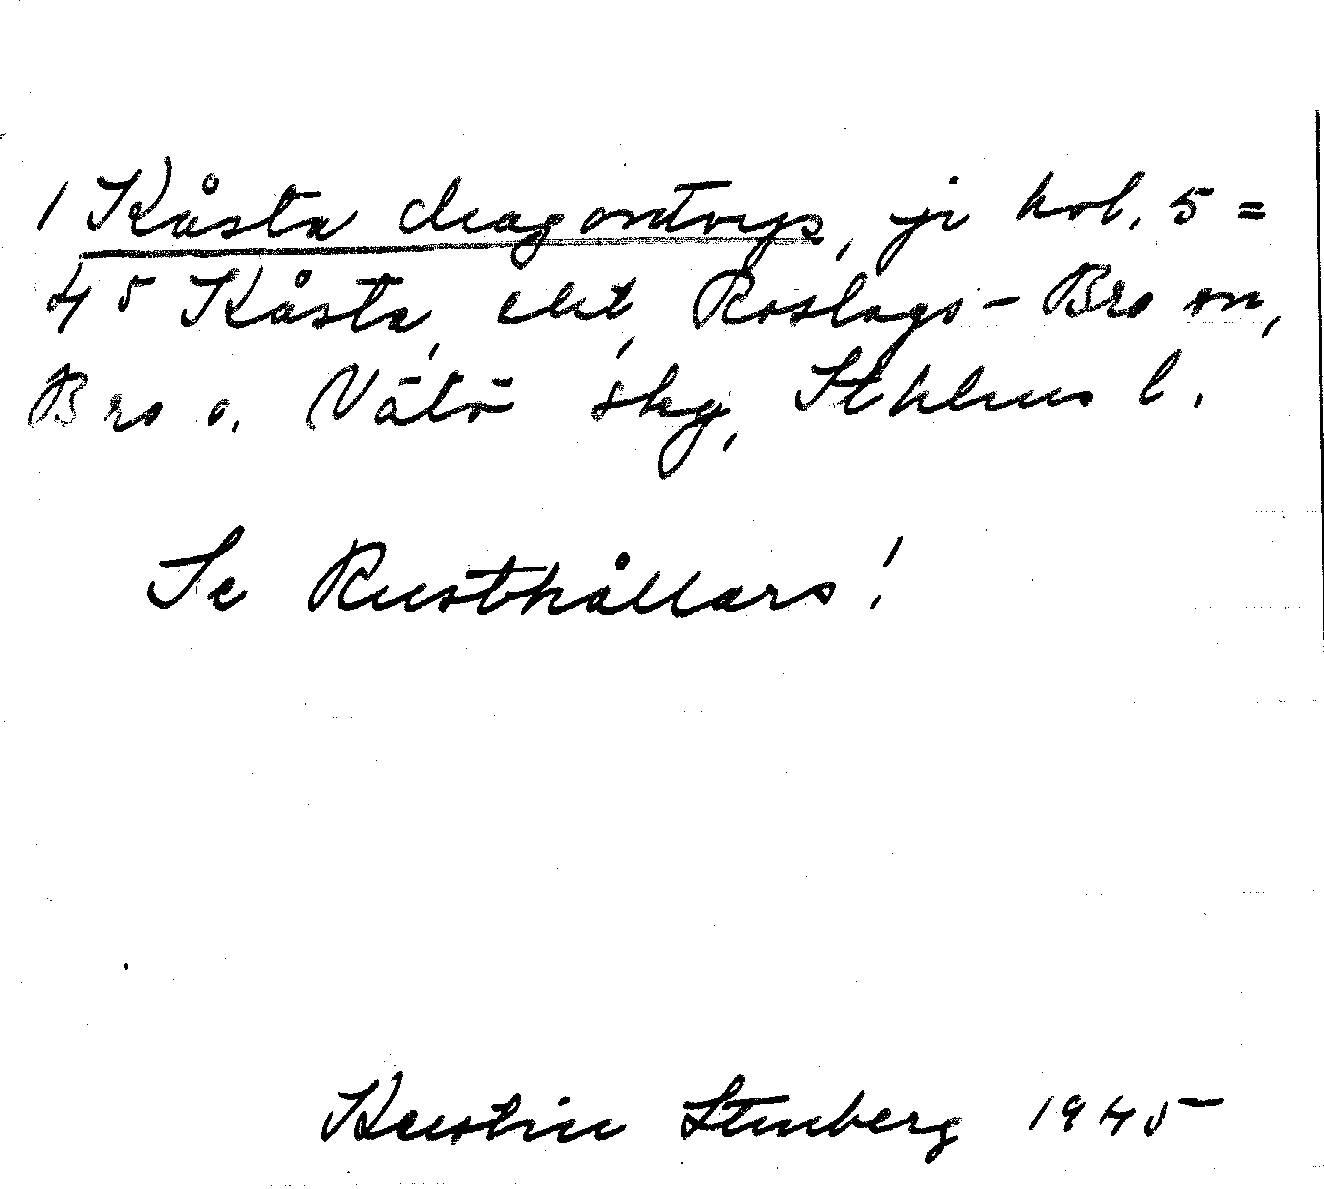 1 Kåsta dragontorp, ji kol. 5 =
45 Kåsta, ekt, Roslags-Bro sn,
Bro o. Vätö skg, Sthlms l.
Se Rusthållars!
Kerstin Stenberg 1945